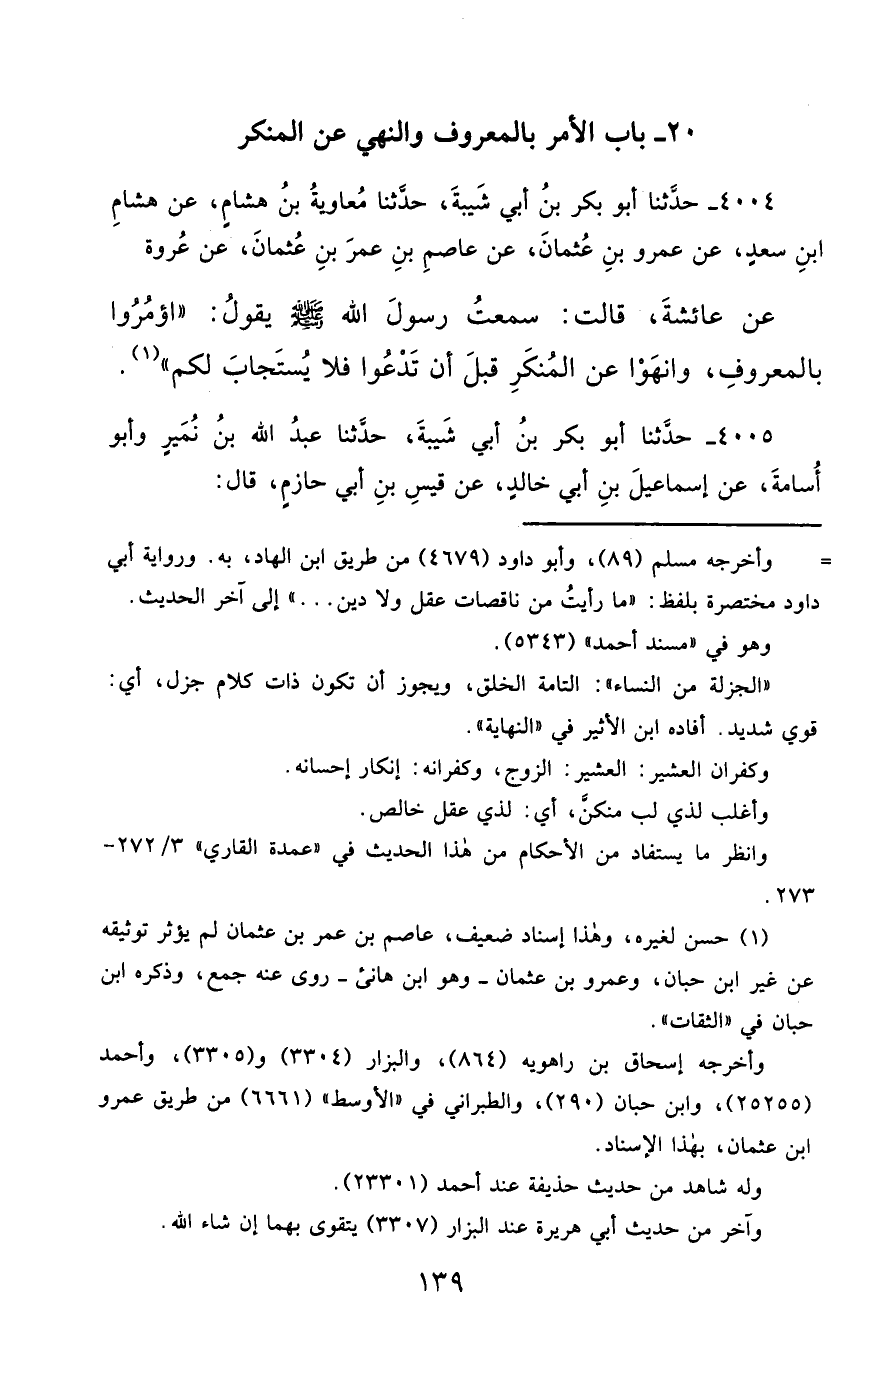 ٢٠ـ باب الأمر بالمعروف والنهي عن المنكر
٤٠٠٤ـ حدَّثنا أبو بكر بنُ أبي شَيبةَ، حدَّثنا مُعاويةُ بنُ هشامٍ، عن هشامِ
ابنِ سعدٍ، عن عمرو بنِ عُثمانَ، عن عاصمِ بنِ عمرَ بنِ عُثمانَ، عن عُروة
عن عائشةَ، قالت: سمعتُ رسولَ الله ﷺ يقولُ: «اؤمُرُوا
بالمعروفِ، وانهَوْا عن المُنكَرِ قبلَ أن تَدْعُوا فلا يُستَجابَ لكم»(١).
٤٠٠٥ـ حدَّثنا أبو بكر بنُ أبي شَيبةَ، حدَّثنا عبدُ الله بنُ نُمَيرٍ وأبو
أُسامةَ، عن إسماعيلَ بنِ أبي خالدٍ، عن قيسِ بنِ أبي حازمٍ، قال:
= وأخرجه مسلم (٨٩)، وأبو داود (٤٦٧٩) من طريق ابن الهاد، به. ورواية أبي
داود مختصرة بلفظ: «ما رأيتُ من ناقصات عقل ولا دين...» إلى آخر الحديث.
وهو في «مسند أحمد» (٥٣٤٣).
«الجزلة من النساء»: التامة الخلق، ويجوز أن تكون ذات كلام جزل، أي:
قوي شديد. أفاده ابن الأثير في «النهاية».
وكفران العشير: العشير: الزوج، وكفرانه: إنكار إحسانه.
وأغلب لذي لب منكنَّ، أي: لذي عقل خالص.
وانظر ما يستفاد من الأحكام من هٰذا الحديث في «عمدة القاري» ٣/ ٢٧٢-
٢٧٣.
(١) حسن لغيره، وهٰذا إسناد ضعيف، عاصم بن عمر بن عثمان لم يؤثر توثيقه
عن غير ابن حبان، وعمرو بن عثمان ـ وهو ابن هانئ ـ روى عنه جمع، وذكره ابن
حبان في «الثقات».
وأخرجه إسحاق بن راهويه (٨٦٤)، والبزار (٣٣٠٤) و(٣٣٠٥)، وأحمد
(٢٥٢٥٥)، وابن حبان (٢٩٠)، والطبراني في «الأوسط» (٦٦٦١) من طريق عمرو
ابن عثمان، بهٰذا الإسناد.
وله شاهد من حديث حذيفة عند أحمد (٢٣٣٠١).
وآخر من حديث أبي هريرة عند البزار (٣٣٠٧) يتقوى بهما إن شاء الله.
١٣٩